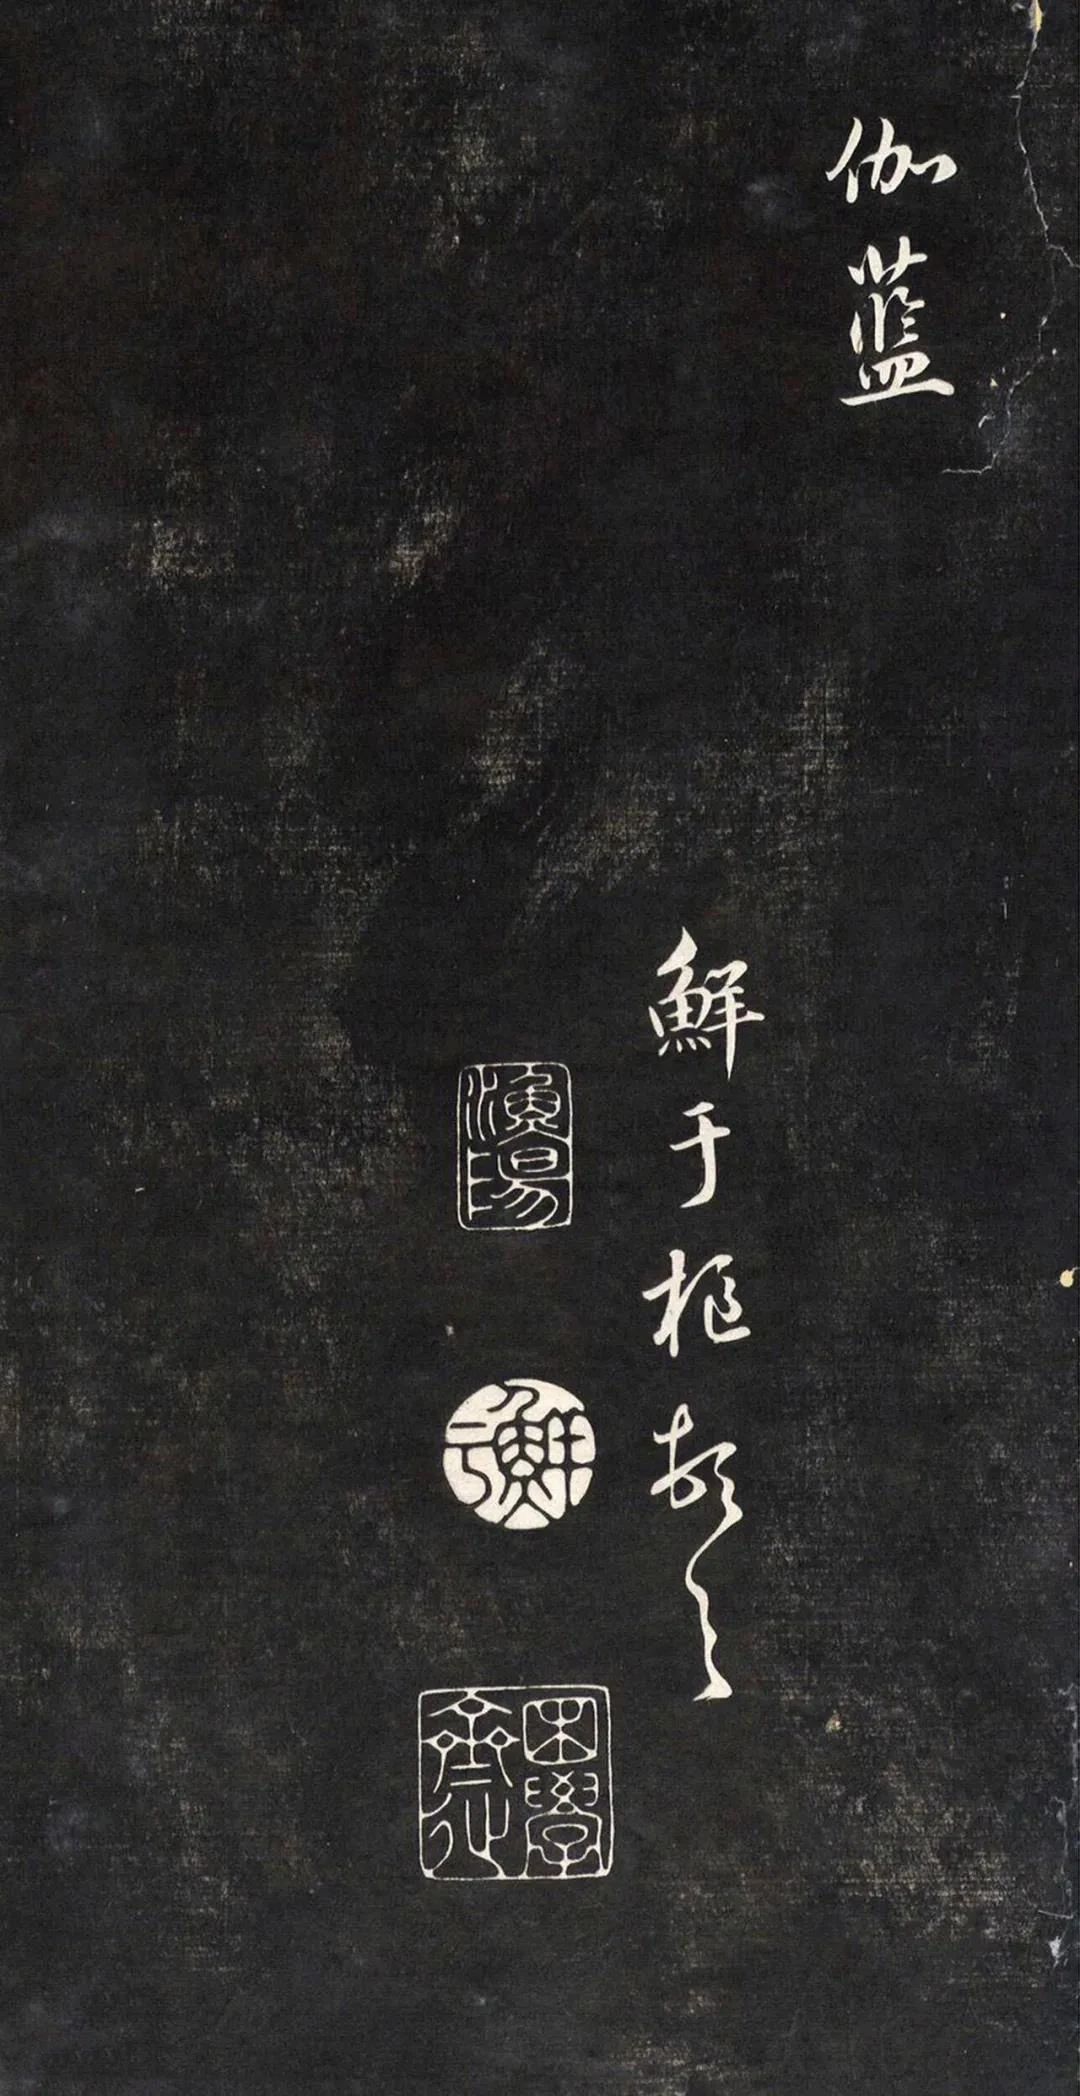 伽藍
鮮于樞
漁陽
鮮于
困學齋